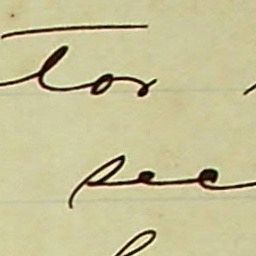 tor
see